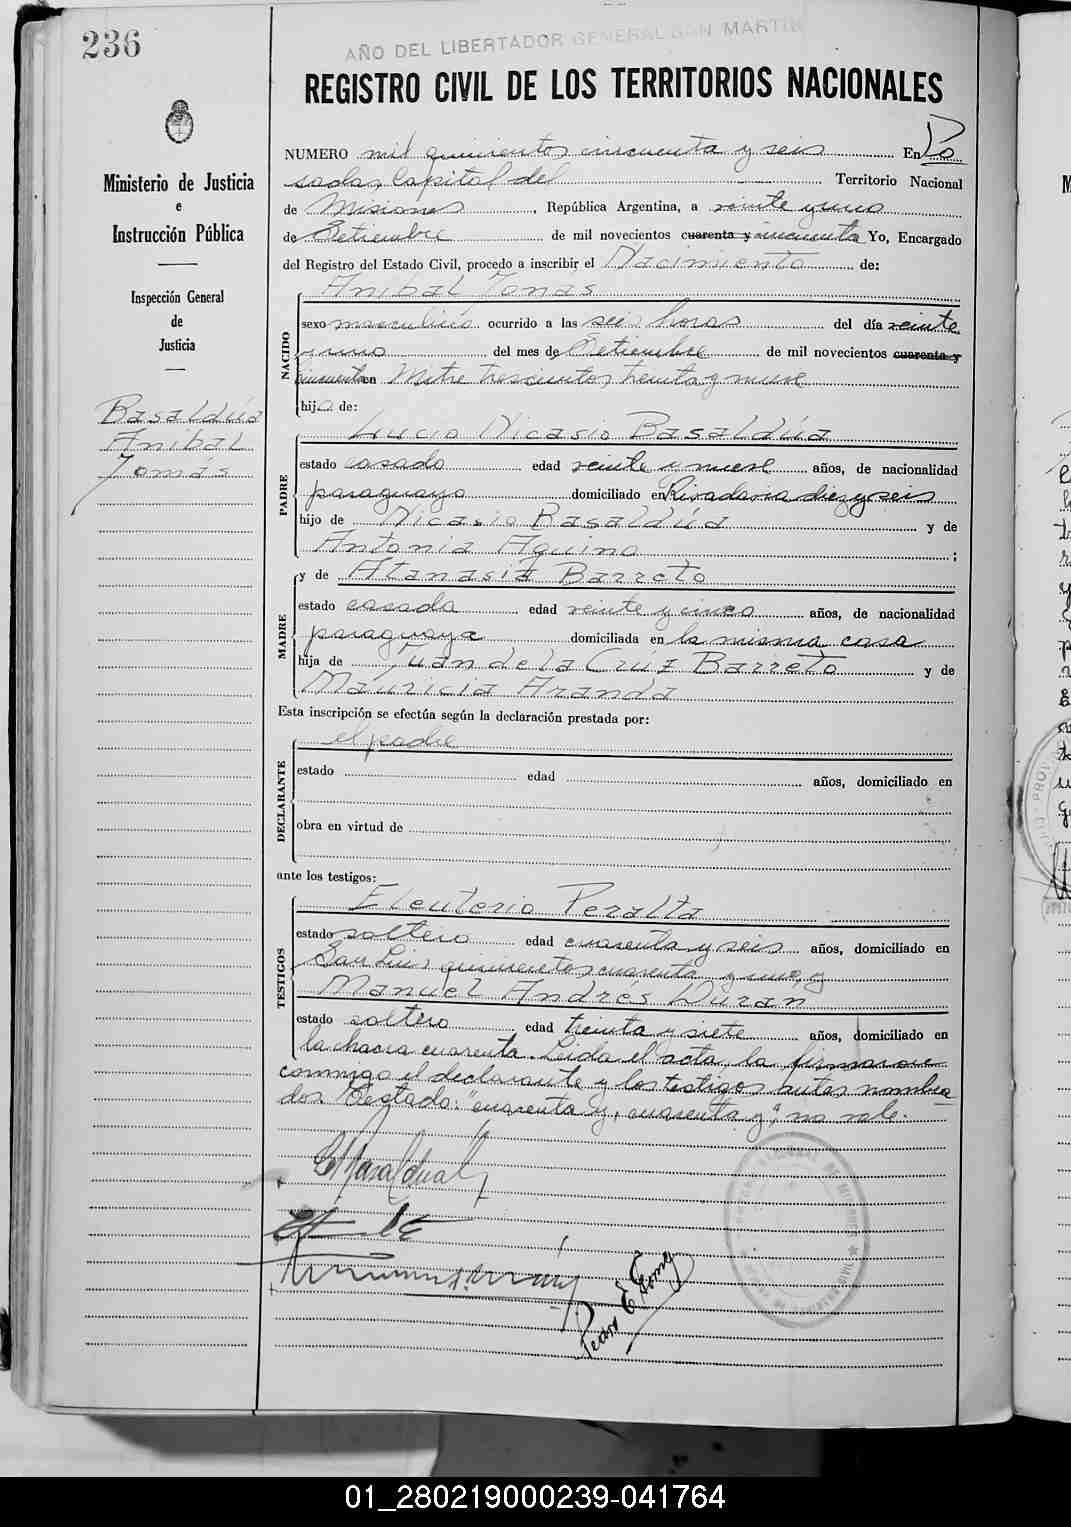 236
AÑO DEL LIBERTADOR GENERAL SAN MARTIN
REGISTRO CIVIL DE LOS TERRITORIOS NACIONALES
Ministerio de Justicia
e
Instrucción Pública
Inspección General
de
Justicia
Basaldúa
Anibal
Tomás
NUMERO mil quinientos cincuenta y seis En Po
sadas Capital del Territorio Nacional
de Misiones, República Argentina, a veinte y uno
de Setiembre de mil novecientos cuarenta y cincuenta Yo, Encargado
del Registro del Estado Civil, procedo a inscribir el Nacimiento de:
NACIDO
Anibal Tomás
sexo masculino ocurrido a las seis horas del día veinte
y uno del mes de Setiembre de mil novecientos cuarenta y
cincuenta en Mitre trescientos treinta y nueve
hijo de:
PADRE
Lucio Nicasio Basaldúa
estado casado edad veinte y nueve años, de nacionalidad
paraguayo domiciliado en Rivadavia diez y seis
hijo de Nicasio Basaldúa y de
Antonia Aquino ;
MADRE
y de Atanasia Barreto
estado casada edad veinte y cinco años, de nacionalidad
paraguaya domiciliada en la misma casa
hija de Juan de la Cruz Barreto y de
Mauricia Aranda
Esta inscripción se efectúa según la declaración prestada por:
DECLARANTE
el padre
estado edad años, domiciliado en
obra en virtud de
ante los testigos:
TESTIGOS
Eleuterio Peralta
estado soltero edad cuarenta y seis años, domiciliado en
San Luis quinientos cuarenta y uno, y
Manuel Andrés Duran
estado soltero, edad treinta y siete años, domiciliado en
la chacra cuarenta. Leida el acta, la firmaron
conmigo el declarante y los testigos antes nombra
dos. Testado: "cuarenta y, cuarenta y", no vale.
Pedro E Gomez
01_280219000239-041764